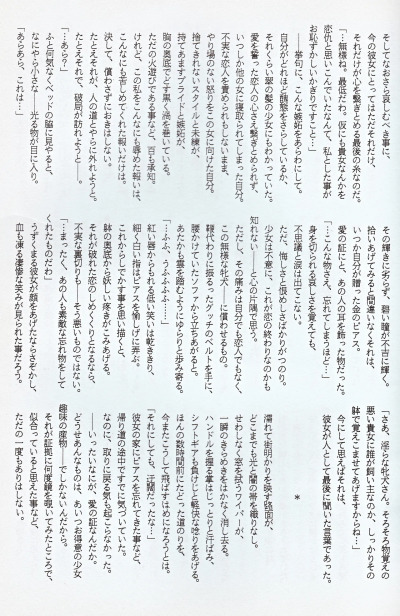 そしてなおさら哀しむべき事に、
今の彼女にとってはただそれだけ、
それだけが心を繋ぎとめる最後の糸なのだ。
「…無様ね。最低だわ。仮にも貴女なんかを
恋仇と思いこんでいたなんて、私とした事が
お恥ずかしいかぎりですこと…」
――挙句に、こんな嫉妬をあらわにして。
自分がどれほど醜態をさらしているか、
それくらい翠の髪の少女にもわかっていた。
愛を誓った恋人の心さえ繋ぎとめられず、
いつしか他の女に寝取られてしまった自分。
不実な恋人を責められもしないまま、
やり場のない怒りをこの女に向けた自分。
捨てきれないスタイルと未練が、
持てあますプライドと嫉妬が、
胸の奥底でどす黒く渦を巻いている。
ただの火遊びである事など、百も承知。
けれど、この私をこんなにも辱めた報いは、
こんなにも苦しめてくれた報いだけは。
決して、償わさずにおきはしない。
たとえそれが、人の道とやらに外れようと。
たとえそれで、破局が訪れようと――。
「…あら？」
ふと何気なくベッドの脇に見やると、
なにやら小さな――光る物が目に入り。
「あらあら、これは…」
その輝きに劣らず、碧い瞳が不吉に輝く。
拾いあげてみると間違いなくそれは、
いつか自分が贈った金のピアス。
愛の証にと、あの人の耳を飾った物だった。
「…こんな物さえ、忘れてしまうほど…」
身を切られる哀しさを覚えても、
不思議と涙は出てこない。
ただ、悔しさと恨めしさばかりがつのり。
少女は不意に、これが恋の終わりなのかも
知れない――と心の片隅で思う。
ただし、その痛みは自分でも恋人でもなく、
この無様な牝犬に――に償わせるもの。
鞭代わりに振るったグッチのベルトを手に、
腰かけていたソファから立ちあがると。
あたかも雲を踏むようにゆらりと歩み寄る。
「…ふふ、うふふふふ……」
紅い唇からもれる低い笑いは乾ききり、
細く白い指はピアスを愉しげに弄ぶ。
これからしでかす事を思い描くと、
躰の奥底から妖しい疼きがこみあげる。
それが破れた恋のしめくくりとなるなら、
不実な裏切りも――そう悪いものではない。
「…まったく、あの人も素敵な忘れ物をして
くれたものだわ」
うずくまる彼女が顔をあげたならさぞかし、
血も凍る凄惨な笑みが見られた事だろう。
「さあ、淫らな牝犬さん。そろそろ物覚えの
悪い貴女に誰が飼い主なのか、しっかりその
躰で覚えこませてあげますからね…」
今にして思えばそれは、
彼女が人として最後に聞いた言葉であった。
＊
濡れて街明かりを映す路面が、
どこまでも光と闇の帯を織りなし。
せわしなく窓を拭うワイパーが、
一瞬のきらめきをはかなく消し去る。
ハンドルを握る掌はじっとりと汗ばみ、
シフトギアも負けじと軽快な唸りをあげる。
ほんの数時間前にたどった道のりを、
今またこうして飛ばすはめになろうとは。
「それにしても、迂闊だったな…」
彼女の家にピアスを忘れてきた事など、
帰り道の途中ですでに気づいていた。
なのに、取りに戻る気も起こらなかった。
――いったいなにが、愛の証なんだか。
どうせあんなものは、あいつお得意の少女
趣味の産物――でしかないんだから。
それが証拠に何度鏡を覗いてみたところで、
似合っていると思えた事など、
ただの一度もありはしない。